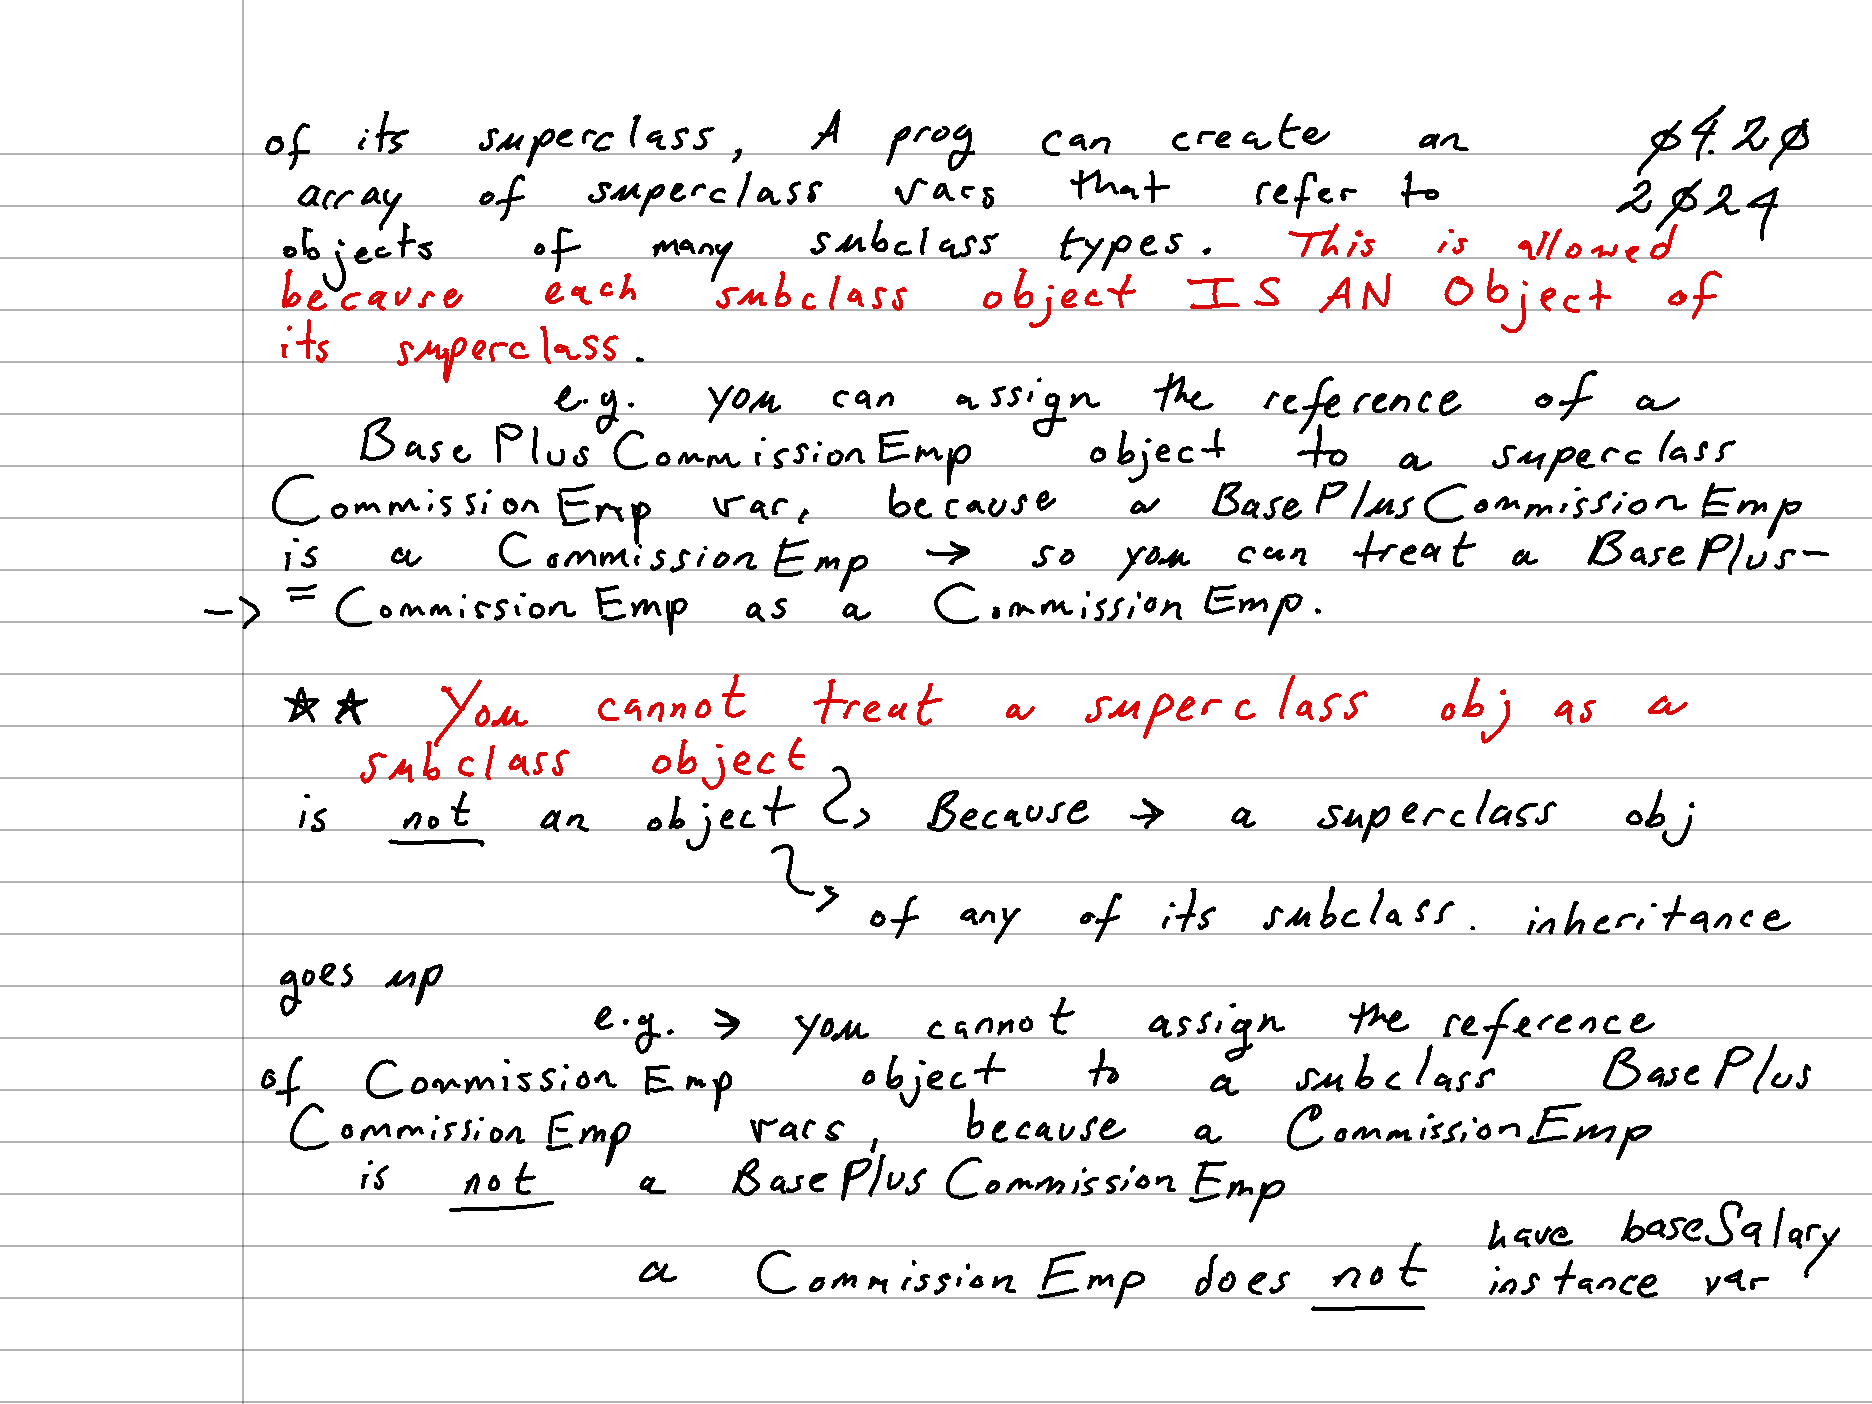 of its superclass, A prog can create an ø4.2ø
array of superclass vars that refer to 2ø24
objects of many subclass types. This is allowed
because each subclass object IS AN Object of
its superclass.
e.g. you can assign the reference of a
BasePlusCommissionEmp object to a superclass
CommissionEmp var, because a BasePlusCommissionEmp
is a CommissionEmp → so you can treat a BasePlus-
-> = CommissionEmp as a CommissionEmp.
☆☆ You cannot treat a superclass obj as a
subclass object
is not an object Because → a superclass obj
of any of its subclass. inheritance
goes up
e.g. → you cannot assign the reference
of CommissionEmp object to a subclass BasePlus
CommissionEmp vars, because a CommissionEmp
is not a BasePlusCommissionEmp
a CommissionEmp does not have baseSalary
instance var